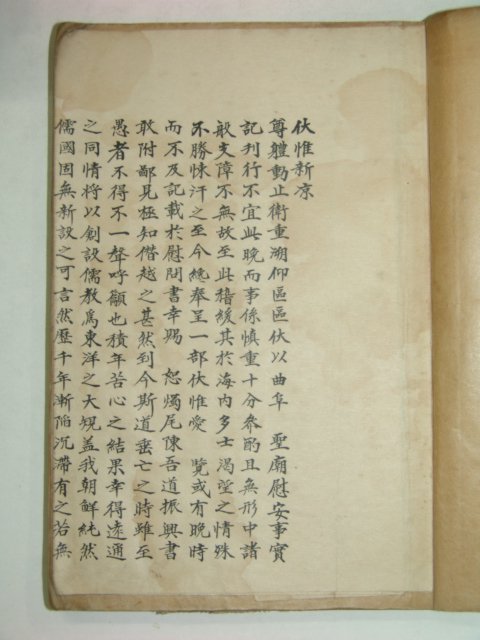 伏惟新凉
尊體動止衛重溯仰區區伏以曲阜 聖廟慰安事實
記刊行不宜此晚而事係慎重十分參酌且無形中諸
般支障不無故至此稽緩其於海内多士渴望之情殊
不勝悚汗之至今総奉呈一部伏惟愛 覽或有晚時
而不及記載於慰問書幸賜 恕燭尾陳吾道振興書
敢附鄙見極知僭越之甚然到今斯道垂亡之時雖至
愚者不得不一聲呼顲也積年苦心之結果幸得遠通
之同情将以創設儒教為東洋之大規盖我朝鮮純然
儒國固無新設之可言然歷千年漸陷沉滯有之若無